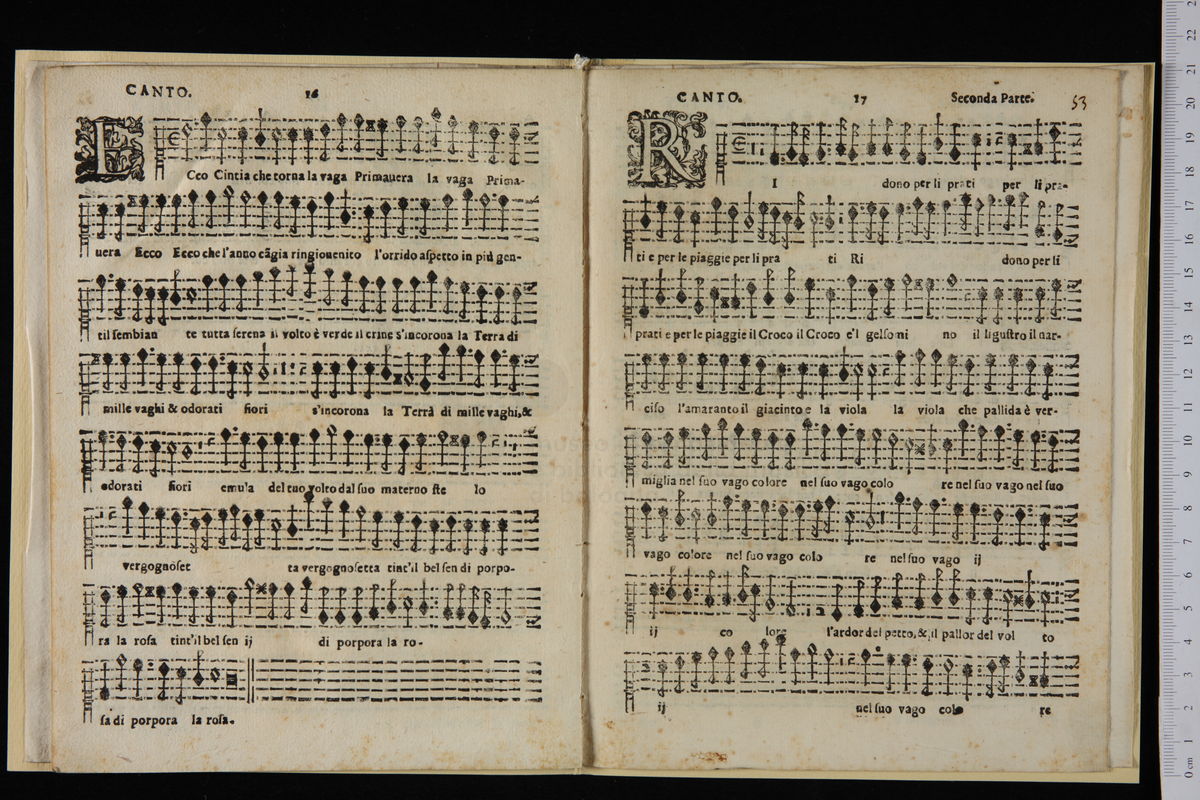 CANTO.
16
ECco Cintia che torna la vaga Primauera la vaga Prima-
uera Ecco Ecco che l'anno cãgia ringiouenito l'orrido aspetto in più gen-
til sembian te tutta serena il volto è verde il crine s'incorona la Terra di
mille vaghi & odorati fiori s'incorona la Terra di mille vaghi,&
odorati fiori emula del tuo volto dal suo materno ste lo
vergognoset ta vergognosetta tint'il bel sen di porpo-
ra la rosa tint'il bel sen ij di porpora la ro-
sa di porpora la rosa.
CANTO.
17
Seconda Parte.
53
RI dono per li prati per li pra-
ti e per le piaggie per li pra ti Ri dono per li
prati e per le piaggie il Croco il Croco e'l gelsomi no il ligustro il nar-
ciso l'amaranto il giacinto e la viola la viola che pallida è ver-
miglia nel suo vago colore nel suo vago colo re nel suo vago nel suo
vago colore nel suo vago colo re nel suo vago ij
ij co lore l'ardor del petto, & il pallor del vol to
ij nel suo vago colo re
22
21
20
19
18
17
16
15
14
13
12
11
10
9
8
7
6
5
4
3
2
1
0 cm